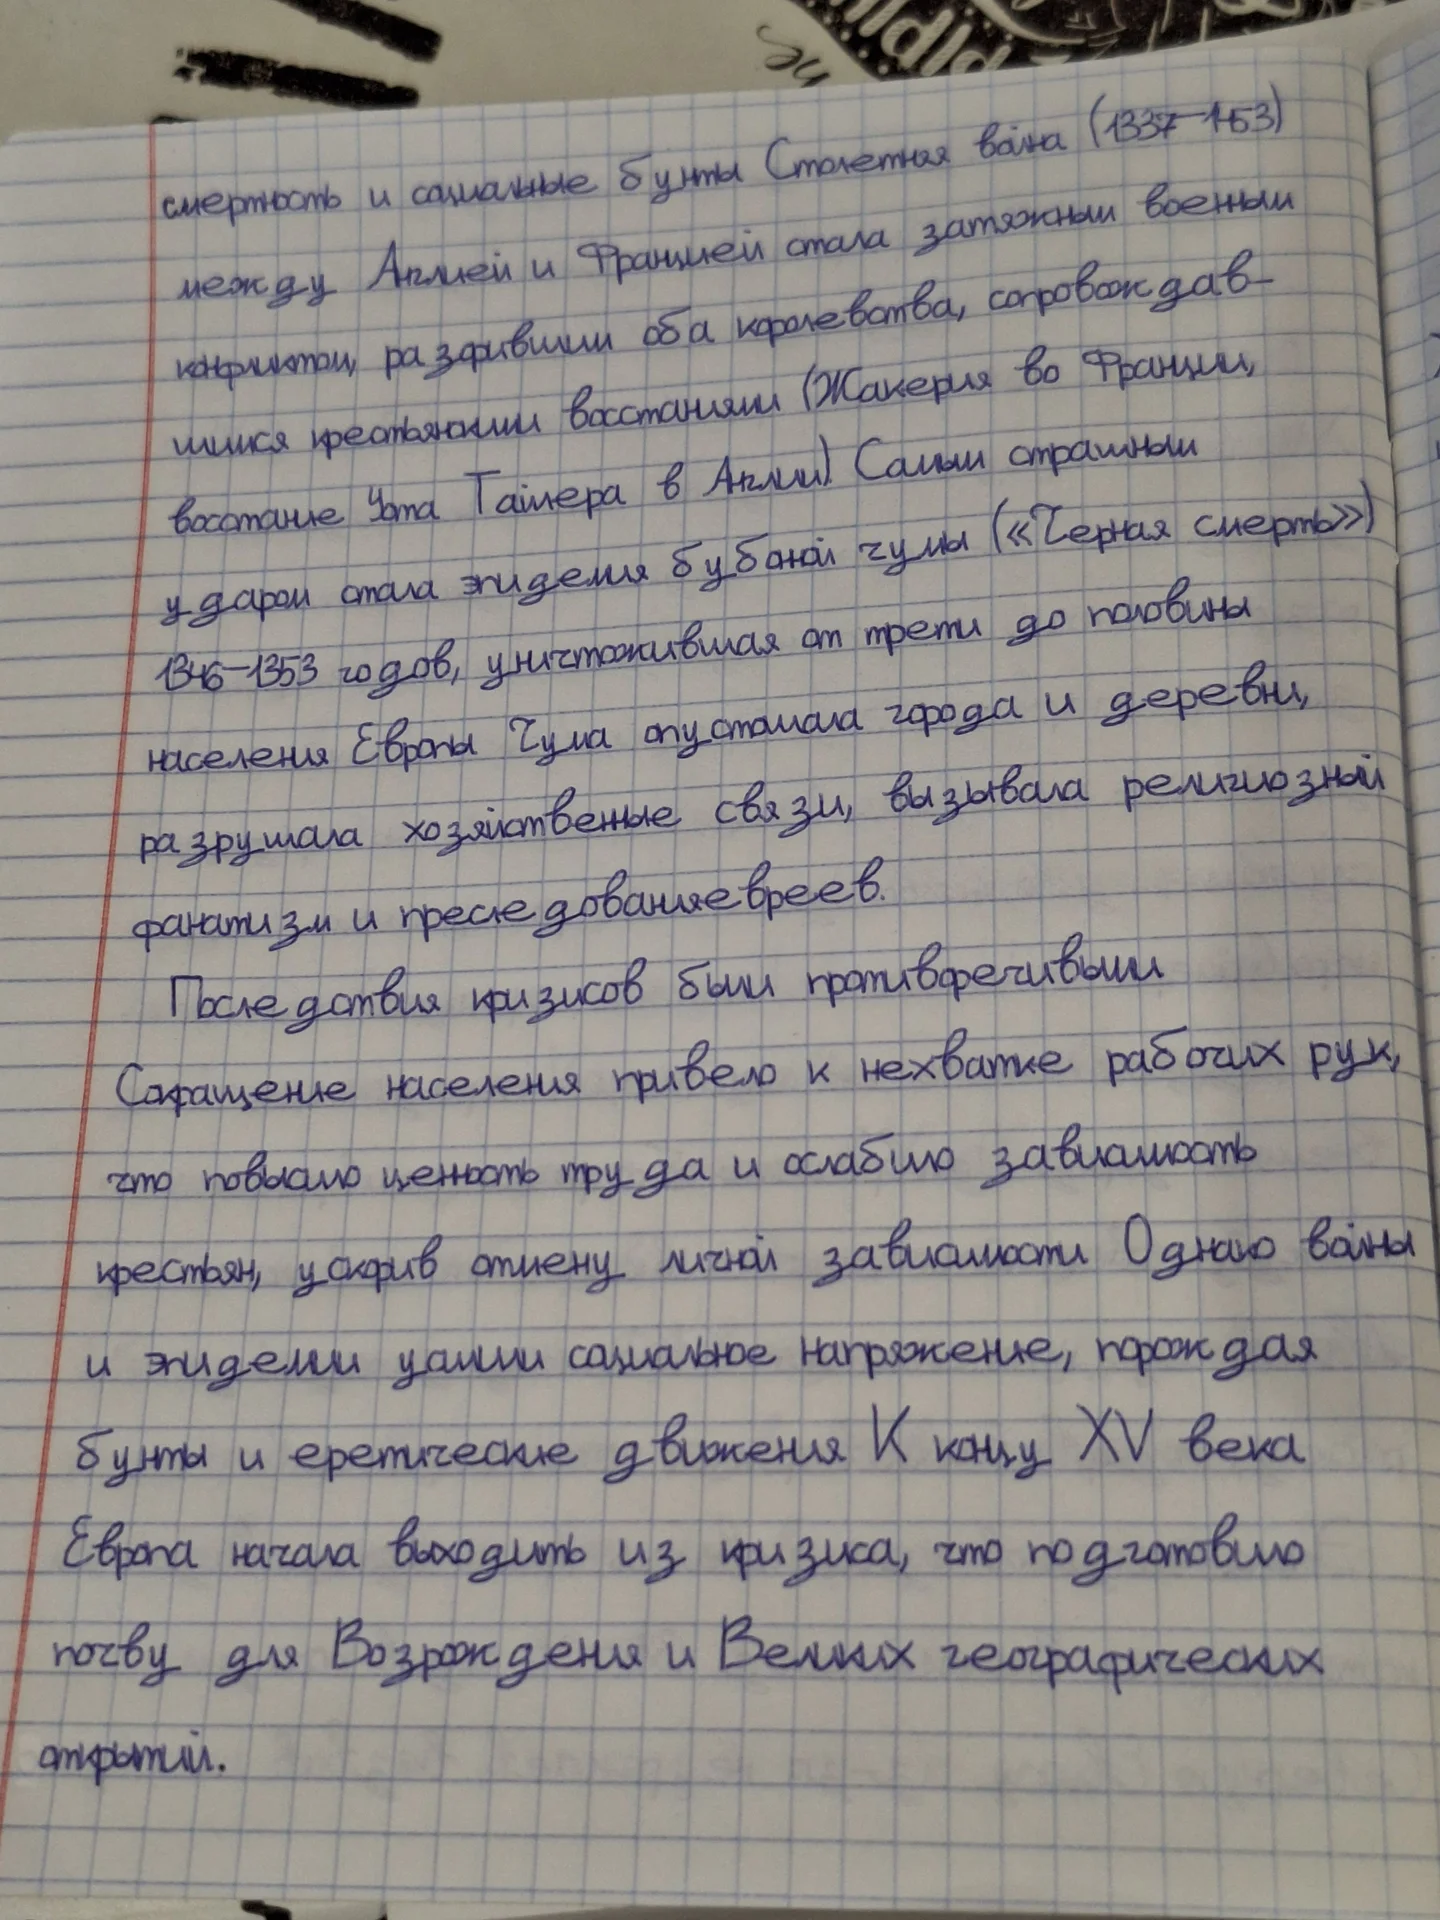 смертность и социальные бунты Столетняя война (1337–1453)
между Англией и Францией стала затяжным военным
конфликтом, разорившим оба королевства, сопровождав-
шимся крестьянскими восстаниями (Жакерия во Франции,
восстание Уота Тайлера в Англии) Самым страшным
ударом стала эпидемия бубонной чумы («Черная смерть»)
1346–1353 годов, уничтожившая от трети до половины
населения Европы Чума опустошала города и деревни,
разрушала хозяйственные связи, вызывала религиозный
фанатизм и преследования евреев.
Последствия кризисов были противоречивыми
Сокращение населения привело к нехватке рабочих рук,
что повысило ценность труда и ослабило зависимость
крестьян, ускорив отмену личной зависимости Однако войны
и эпидемии усилили социальное напряжение, порождая
бунты и еретические движения К концу XV века
Европа начала выходить из кризиса, что подготовило
почву для Возрождения и Великих географических
открытий.